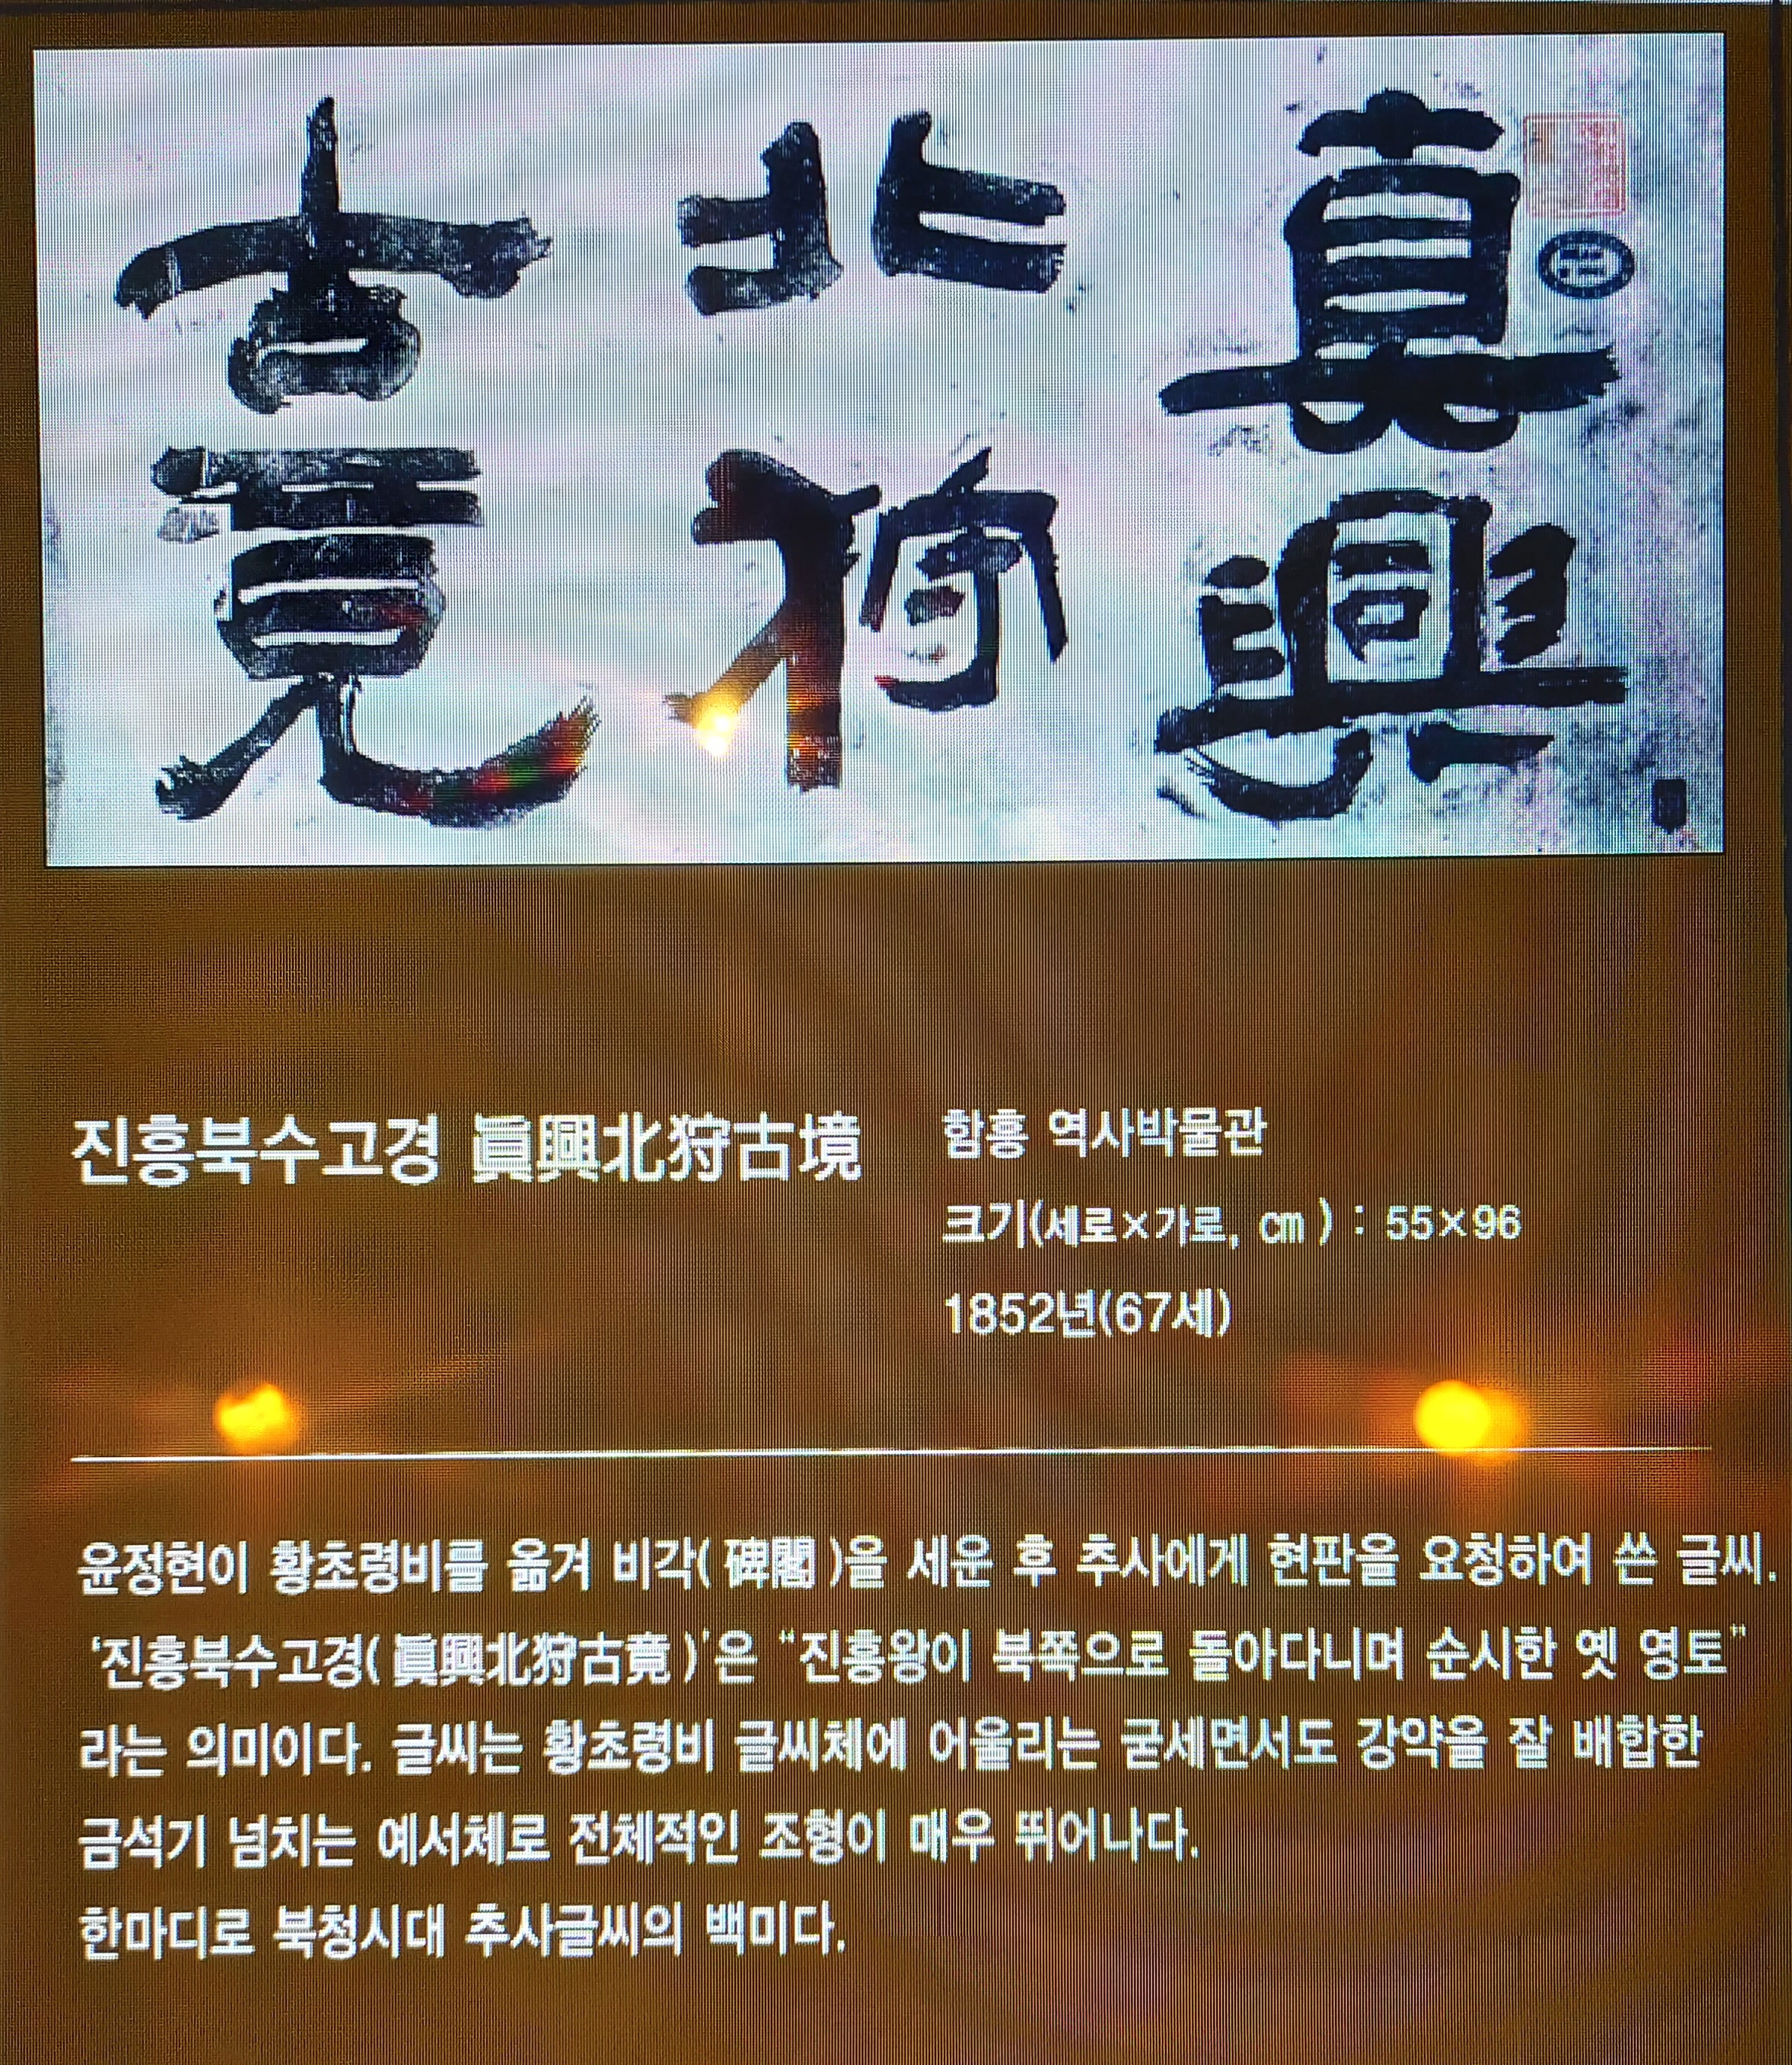 眞興
北狩
古竟
진흥북수고경 眞興北狩古境
함흥 역사박물관
크기(세로×가로, cm) : 55×96
1852년(67세)
윤정현이 황초령비를 옮겨 비각(碑閣)을 세운 후 추사에게 현판을 요청하여 쓴 글씨.
‘진흥북수고경(眞興北狩古竟)’은 “진흥왕이 북쪽으로 돌아다니며 순시한 옛 영토”
라는 의미이다. 글씨는 황초령비 글씨체에 어울리는 굳세면서도 강약을 잘 배합한
금석기 넘치는 예서체로 전체적인 조형이 매우 뛰어나다.
한마디로 북청시대 추사글씨의 백미다.